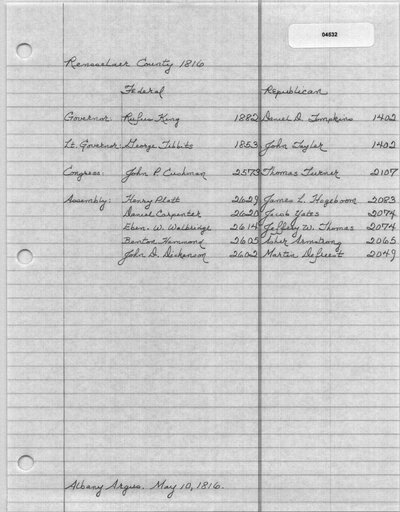 04532
Rensselaer County 1816
Federal Republican
Governor: Rufus King 1882 Daniel D. Tompkins 1402
Lt. Governor: George Tibbits 1853 John Tayler 1402
Congress: John P. Cushman 2573 Thomas Turner 2107
Assembly: Henry Platt 2629 James L. Hogeboom 2083
Daniel Carpenter 2620 Jacob Yates 2074
Eben. W. Walbridge 2614 Jeffery W. Thomas 2074
Benton Hammond 2605 Asher Armstrong 2065
John D. Dickinson 2602 Martin Defreest 2049
Albany Argus. May 10, 1816.